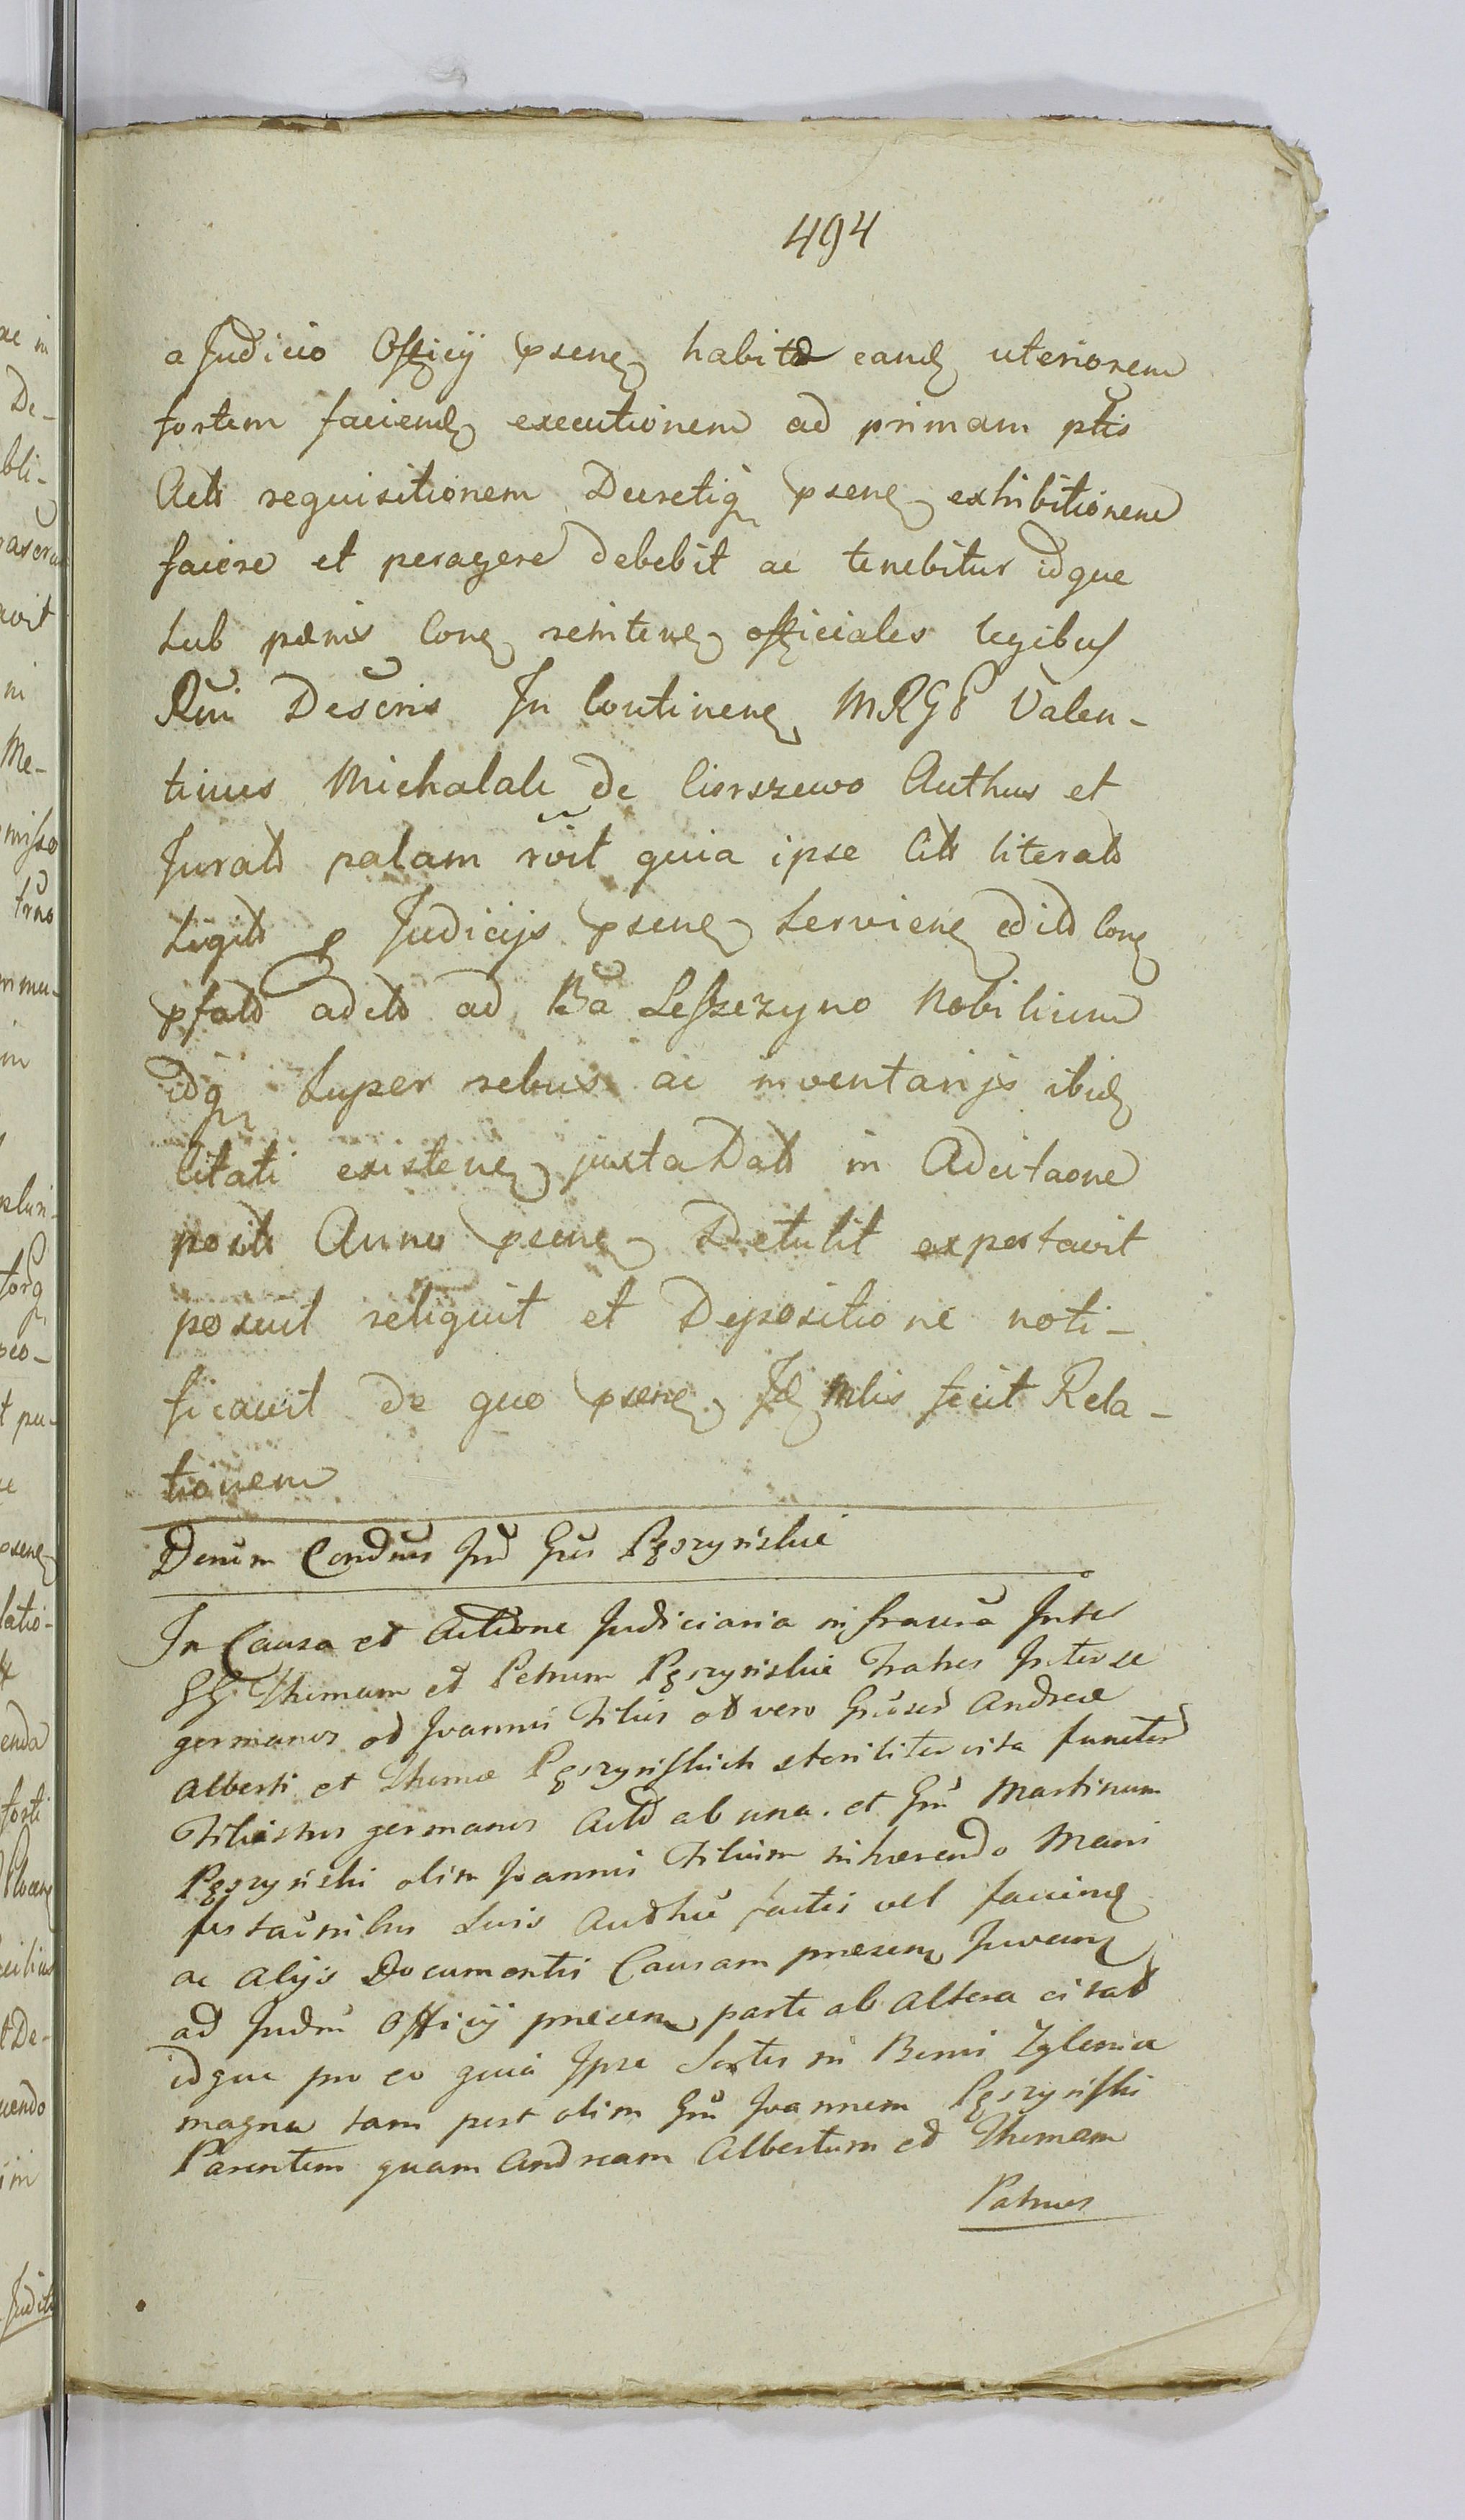 494
a Judicio Officij psene habita eand uteriorem
sortem faciend executionem ad primam ptis
Acts requisitionem Decretiq psene exhibitionem
facere et peragere debebit ac tenebitur idque
sub pænis Con reniten officiales legibus
Rni Descris In Continen MRGE Valen-
tinus Michalak de Cierszewo Authus et
Jurats palam roit quia ipse Cits literats
Sigits p Judicijs psene servien edits Con
psats adcts ad Ba Leszczyno Nobilium
idq super rebus ac inventarijs ibid
Citati existen juxta Dats in Adcitaone
posits Anno psene Detulit exportavit
posuit reliquit et Depositione noti-
ficavit de quo psene Id Mlis fecit Rela-
tionem
Denum Condnis Jnd Grs Pęszyńskie
In Causa et Actione Judiciaria infrascra Inter
GG Thomam et Petrum Pęszyńskie Fratres Inter se
germanos od Joannis Filios ad vero Grosed Andreæ
Alberti et Thomæ Pęszyńskich steriliter vita functos
Filiastros germanos Acts ab una et Grm Martinum
Pęszyński olim Joannis Filium inhærendo Mani
festaonibus suis Authce factis vel faciend
ac alijs Documentis Causam præsen Juvan
ad Judm Officij præsen parte ab altera citat
idque pro eo quia Ipse Sortes in Bonis Zglenice
magna tam post olim Grm Joannem Pęszyński
Parentem quam Andream Albertum et Thomam
Patruos